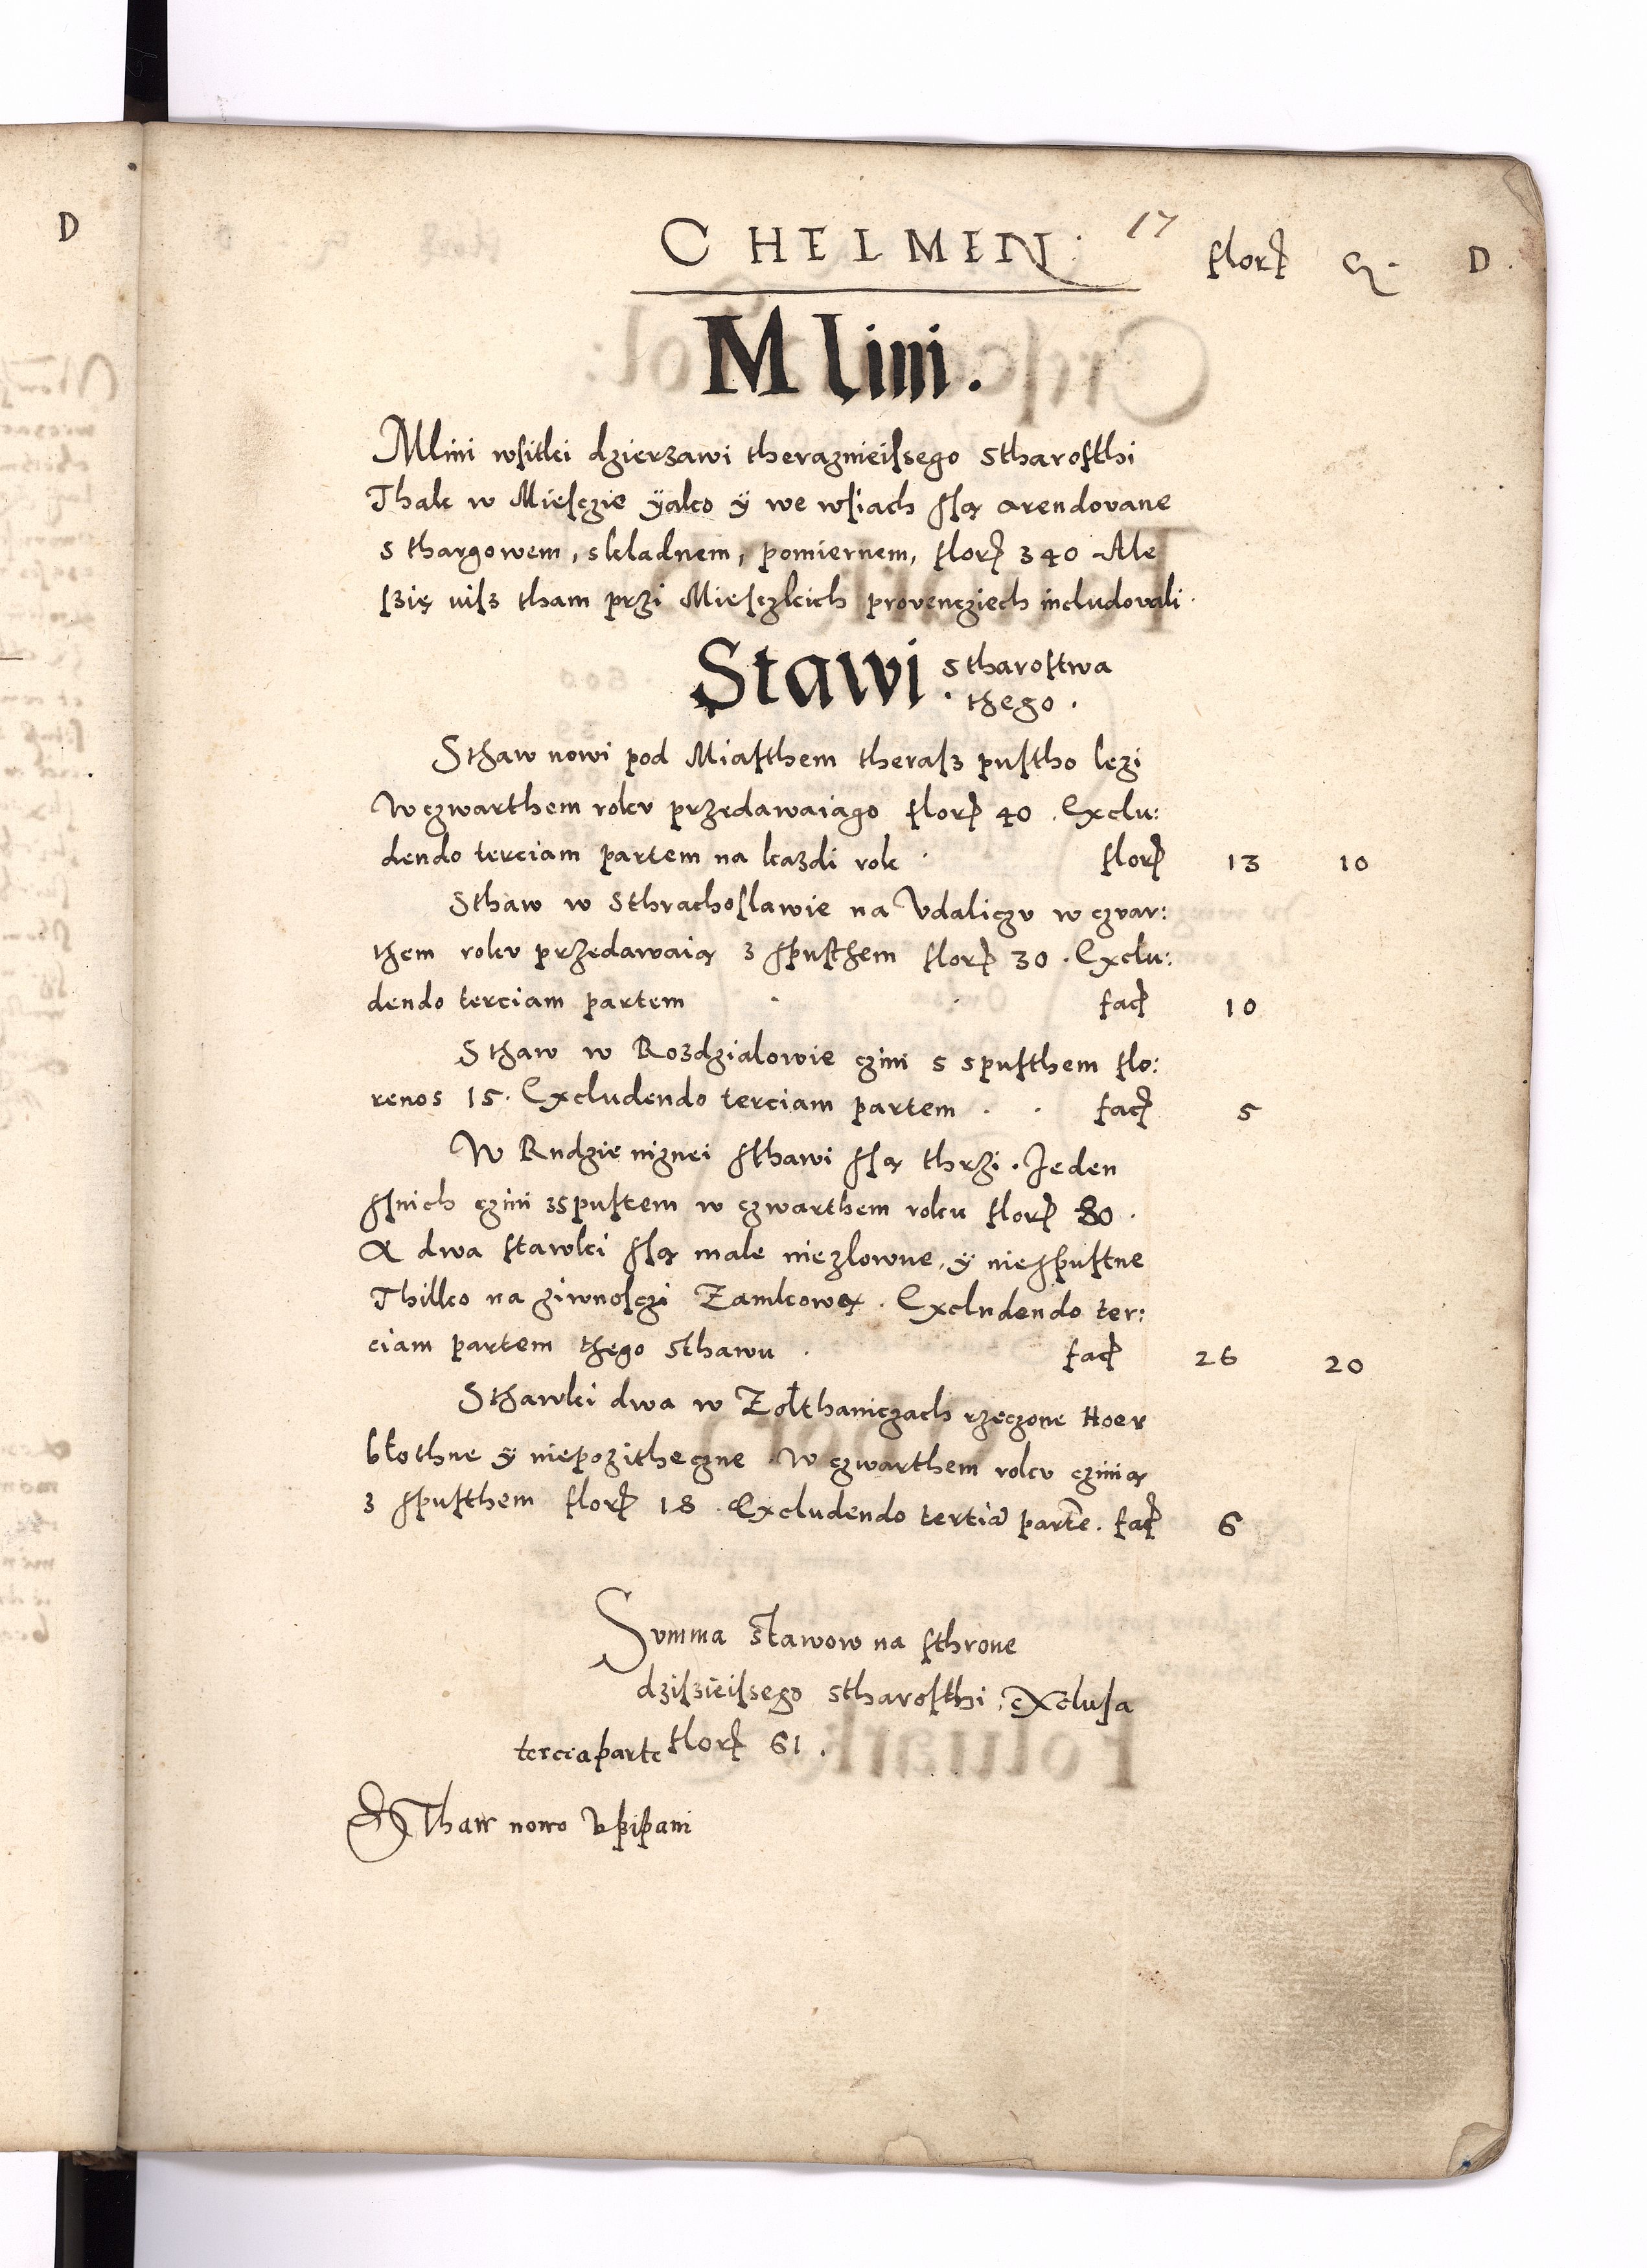 D
CHELMEN: 17 flor gr. D.
Mlini.
Mlini wsitki dzierzawi theraznieisego Stharosthi
Thak w Miesczie ÿako ÿ we wsiach ssą arendovane
s thargowem, skladnem, pomiernem, flor 340 Ale
szię visz tham przi Miesczkich provencziech includovali.
Stawi. stharostwa
thego.
Sthaw nowi pod Miasthem therasz pustho lezi
W czwarthem rokv przedawaiago flor 40. Exclu:
dendo terciam partem na kazdi rok. flor 13 10
Sthaw w Sthrachoslawie na Vdaliczv w czvar:
them rokv przedawaią 3 spusthem flor 30. Exclu:
dendo terciam partem . . fac 10
Sthaw w Rozdzialowie czini s spusthem flo:
renos 15. Excludendo terciam partem . . fac 5
W Rudzie niznei sthawi ssą thrzi. Jeden
ssnich czini 3spustem w czwarthem roku flor 80.
A dwa stawki ssą male niezlowne, ÿ niespustne
Thilko na ziwnosczi Zamkową. Excludendo ter:
ciam partem thego sthawu . fac 26 20
Sthawki dwa w Zołthaniczach rzeczone Hoer
błothne ÿ niepozitheczne W czwarthem rokv czinią
3 spusthem flor 18. Excludendo tertiā partē. fac 6
Svmma stawow na sthrone
dziszieisego stharosthi. exclusa
tercia parte flor 61.
SThaw nowo Vsipani